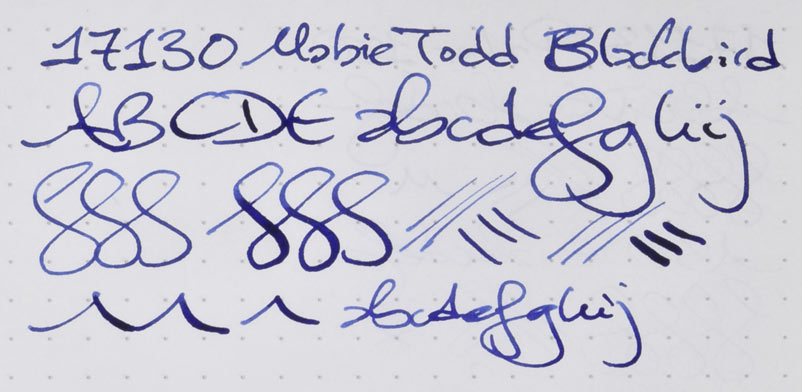 17130 Mabie Todd Blackbird
ABCDE abcdefghij
abcdefghij